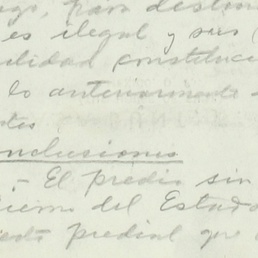 para destin
es ilegal y sus
ilidad constituci
lo anteriormente
nclusiones
.- El predio sin
del Estado
predial que